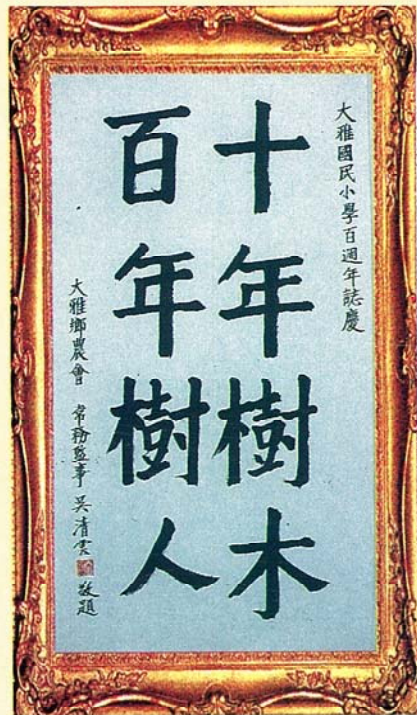 大雅國民小學百週年誌慶
十年樹木
百年樹人
大雅鄉農會 常務監事 吳清雲 敬題